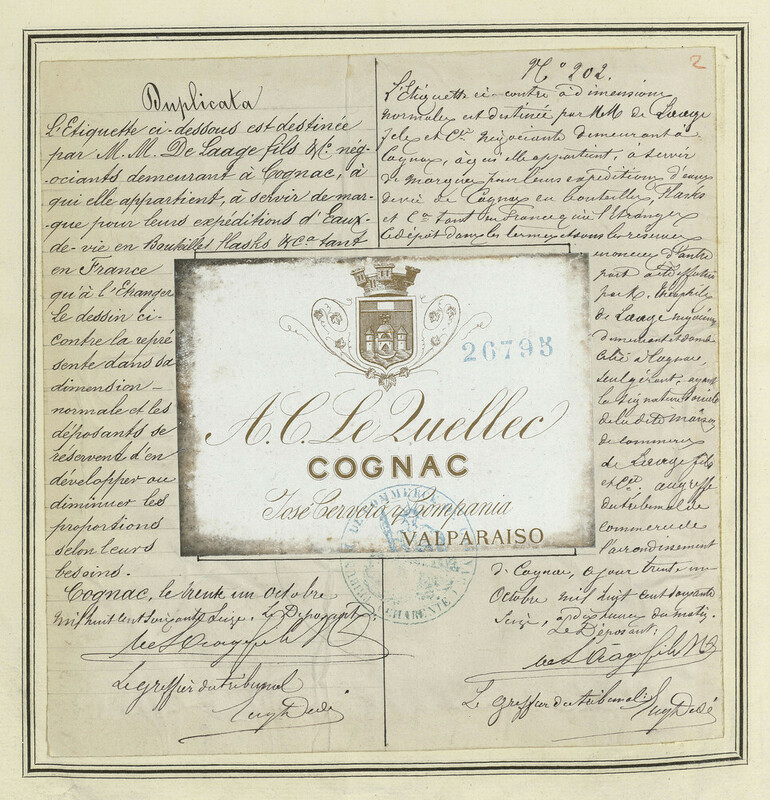 Duplicata
L'Etiquette ci-dessous est destinée
par M.M. De Laage fils & Cie. nég-
ociants demeurant à Cognac, à
qui elle appartient, à servir de mar-
que pour leurs expéditions d'Eaux-
de-vie en Bouteilles flasks & Ca tant
en France
qu'à l'Etranger
Le dessin ci-
contre la repré
sente dans sa
dimension
normale et les
déposants se
réservent d'en
développer ou
diminuer les
proportions
selon leurs
besoins.
Cognac, le trente un octobre
mil huit cent soixante seize. Le Déposant
de Laage fils
Le greffier du tribunal
No 202.
2
L'Etiquette ci-contre a dimensions
normales est destinée, par MM de Laage
fils et Cie négociants demeurant à
Cognac, à qui elle appartient, à servir
de marque pour leurs expéditions d'eaux
de vie de Cognac en bouteilles, flasks
et Ca tant en France qu'à l'Etranger
Le dépôt dans les termes et sous les réserves
énoncés d'autre
part a été effectué
par M. Théophile
de Laage négociant
demeurant et domi
cilié à Cognac,
seul gérant, ayant
la signature sociale
de la dite maison
de commerce
de Laage fils
et Cie. au greffe
du tribunal de
commerce de
l'arrondissement
de Cognac, ce jour trente un
Octobre mil huit cent soixante
Seize, à dix heures du matin.
Le Déposant:
de Laage fils & Co
Le greffier du tribunal:
26795
A. C. Le Quellec
COGNAC
José Cervero y Compania
VALPARAISO
TRIBUNAL DE COMMERCE
CHARENTE